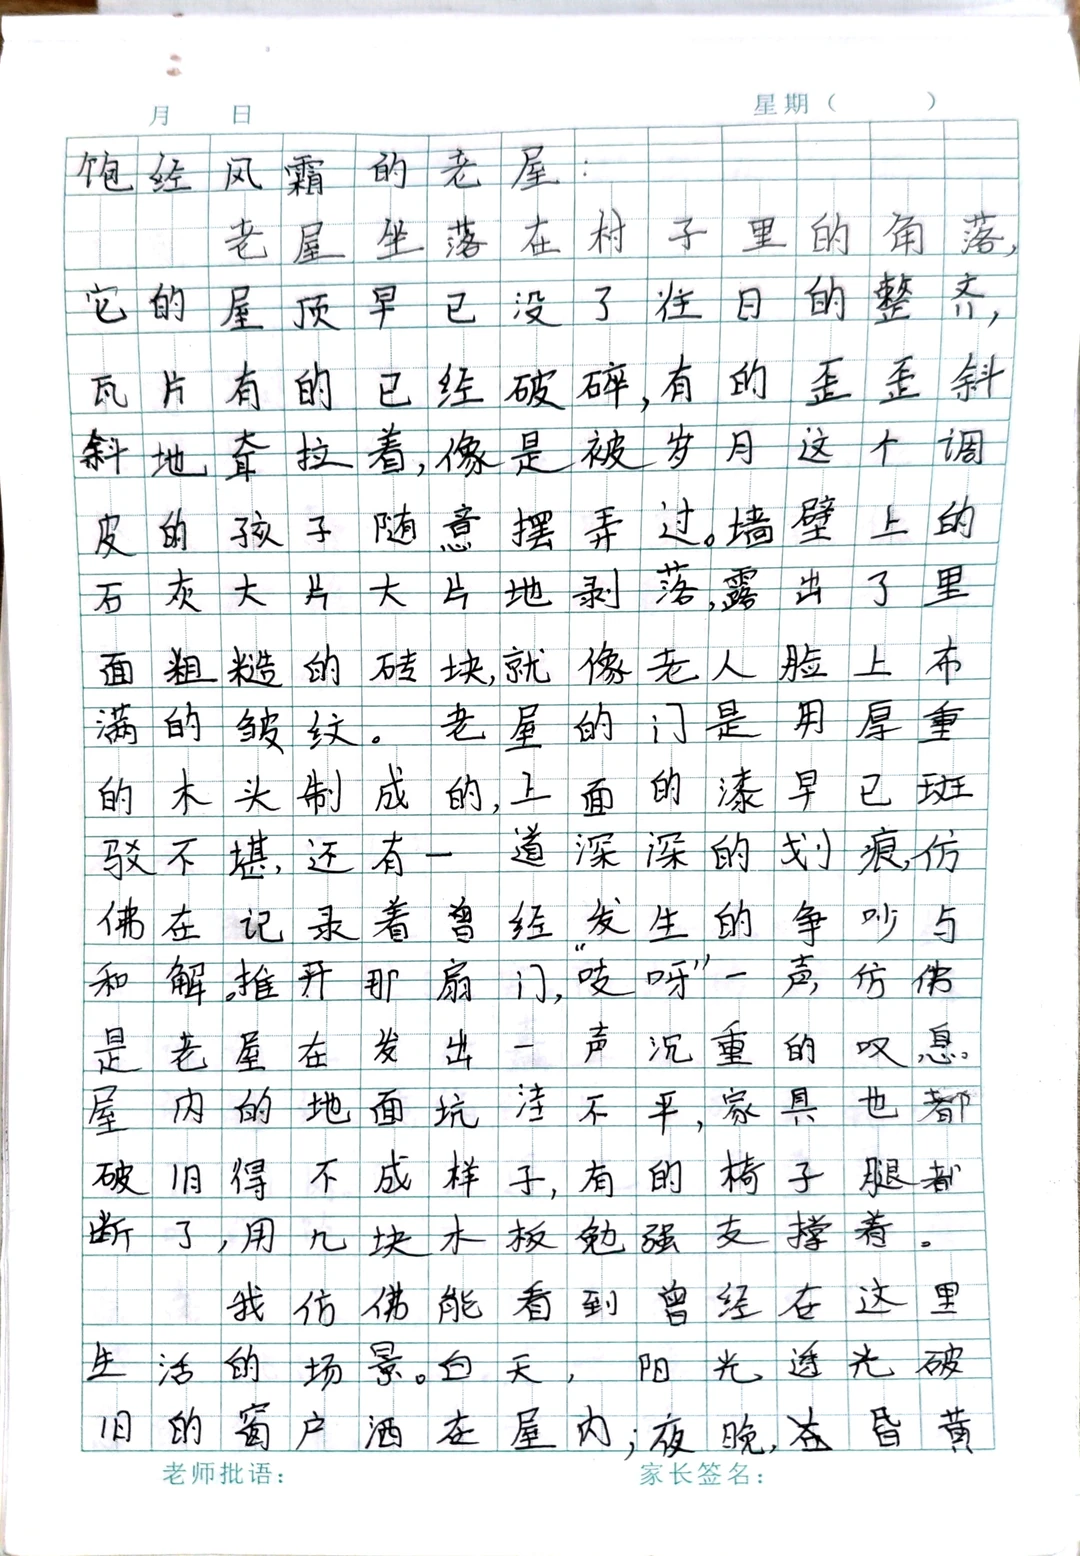 月 日 星期（ ）
饱经风霜的老屋：
老屋坐落在村子里的角落，
它的屋顶早已没了往日的整齐，
瓦片有的已经破碎，有的歪歪斜
斜地耷拉着，像是被岁月这个调
皮的孩子随意摆弄过。墙壁上的
石灰大片大片地剥落，露出了里
面粗糙的砖块，就像老人脸上布
满的皱纹。老屋的门是用厚重
的木头制成的，上面的漆早已斑
驳不堪，还有一道深深的划痕，仿
佛在记录着曾经发生的争吵与
和解。推开那扇门，“吱呀”一声，仿佛
是老屋在发出一声沉重的叹息。
屋内的地面坑洼不平，家具也都
破旧得不成样子，有的椅子腿都
断了，用几块木板勉强支撑着。
我仿佛能看到曾经在这里
生活的场景。白天，阳光透光破
旧的窗户洒在屋内；夜晚，在昏黄
老师批语： 家长签名：